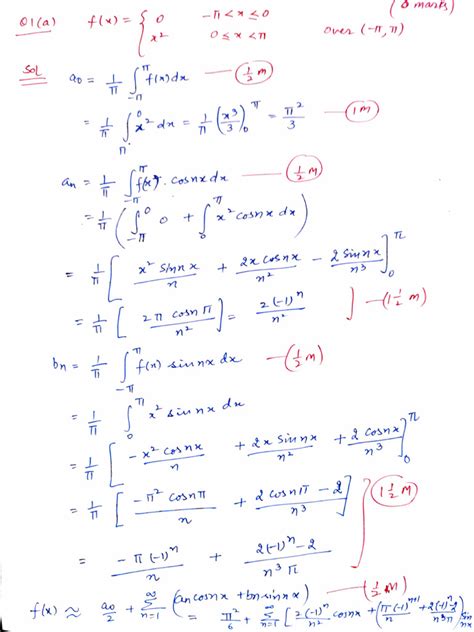 (8 marks)
Q1(a) f(x) = { 0 -π < x ≤ 0
x² 0 ≤ x < π over (-π, π)
Sol a₀ = 1/π ∫_{-π}^{π} f(x) dx — (1/2 m)
= 1/π ∫_{π}^{0} x² dx = 1/π (x³/3)₀^π = π²/3 — (1M)
aₙ = 1/π ∫_{-π}^{π} f(x) · cosnx dx — (1/2 m)
= 1/π ( ∫_{-π}^{0} 0 + ∫_{0}^{π} x² cosnx dx )
= 1/π [ x² sinnx/n + 2x cosnx/n² - 2 sinnx/n³ ]₀^π
= 1/π [ 2π cosnπ/n² ] = 2(-1)ⁿ/n² ] — (1 1/2 m)
bₙ = 1/π ∫_{-π}^{π} f(x) sinnx dx — (1/2 m)
= 1/π ∫_{0}^{π} x² sinnx dx
= 1/π [ -x² cosnx/n + 2x sinnx/n² + 2cosnx/n³ ]₀^π
= 1/π [ -π² cosnπ/n + 2cosnπ - 2/n³ ] (1 1/2 M)
= -π(-1)ⁿ/n + 2(-1)ⁿ - 2/n³π
f(x) ≈ a₀/2 + Σ_{n=1}^{∞} (aₙcosnx + bₙsinnx) — (1/2 m)
= π²/6 + Σ_{n=1}^{∞} [ 2(-1)ⁿ/n² cosnx + (π(-1)ⁿ⁺¹/n + 2(-1)ⁿ-2/n³π) sinnx